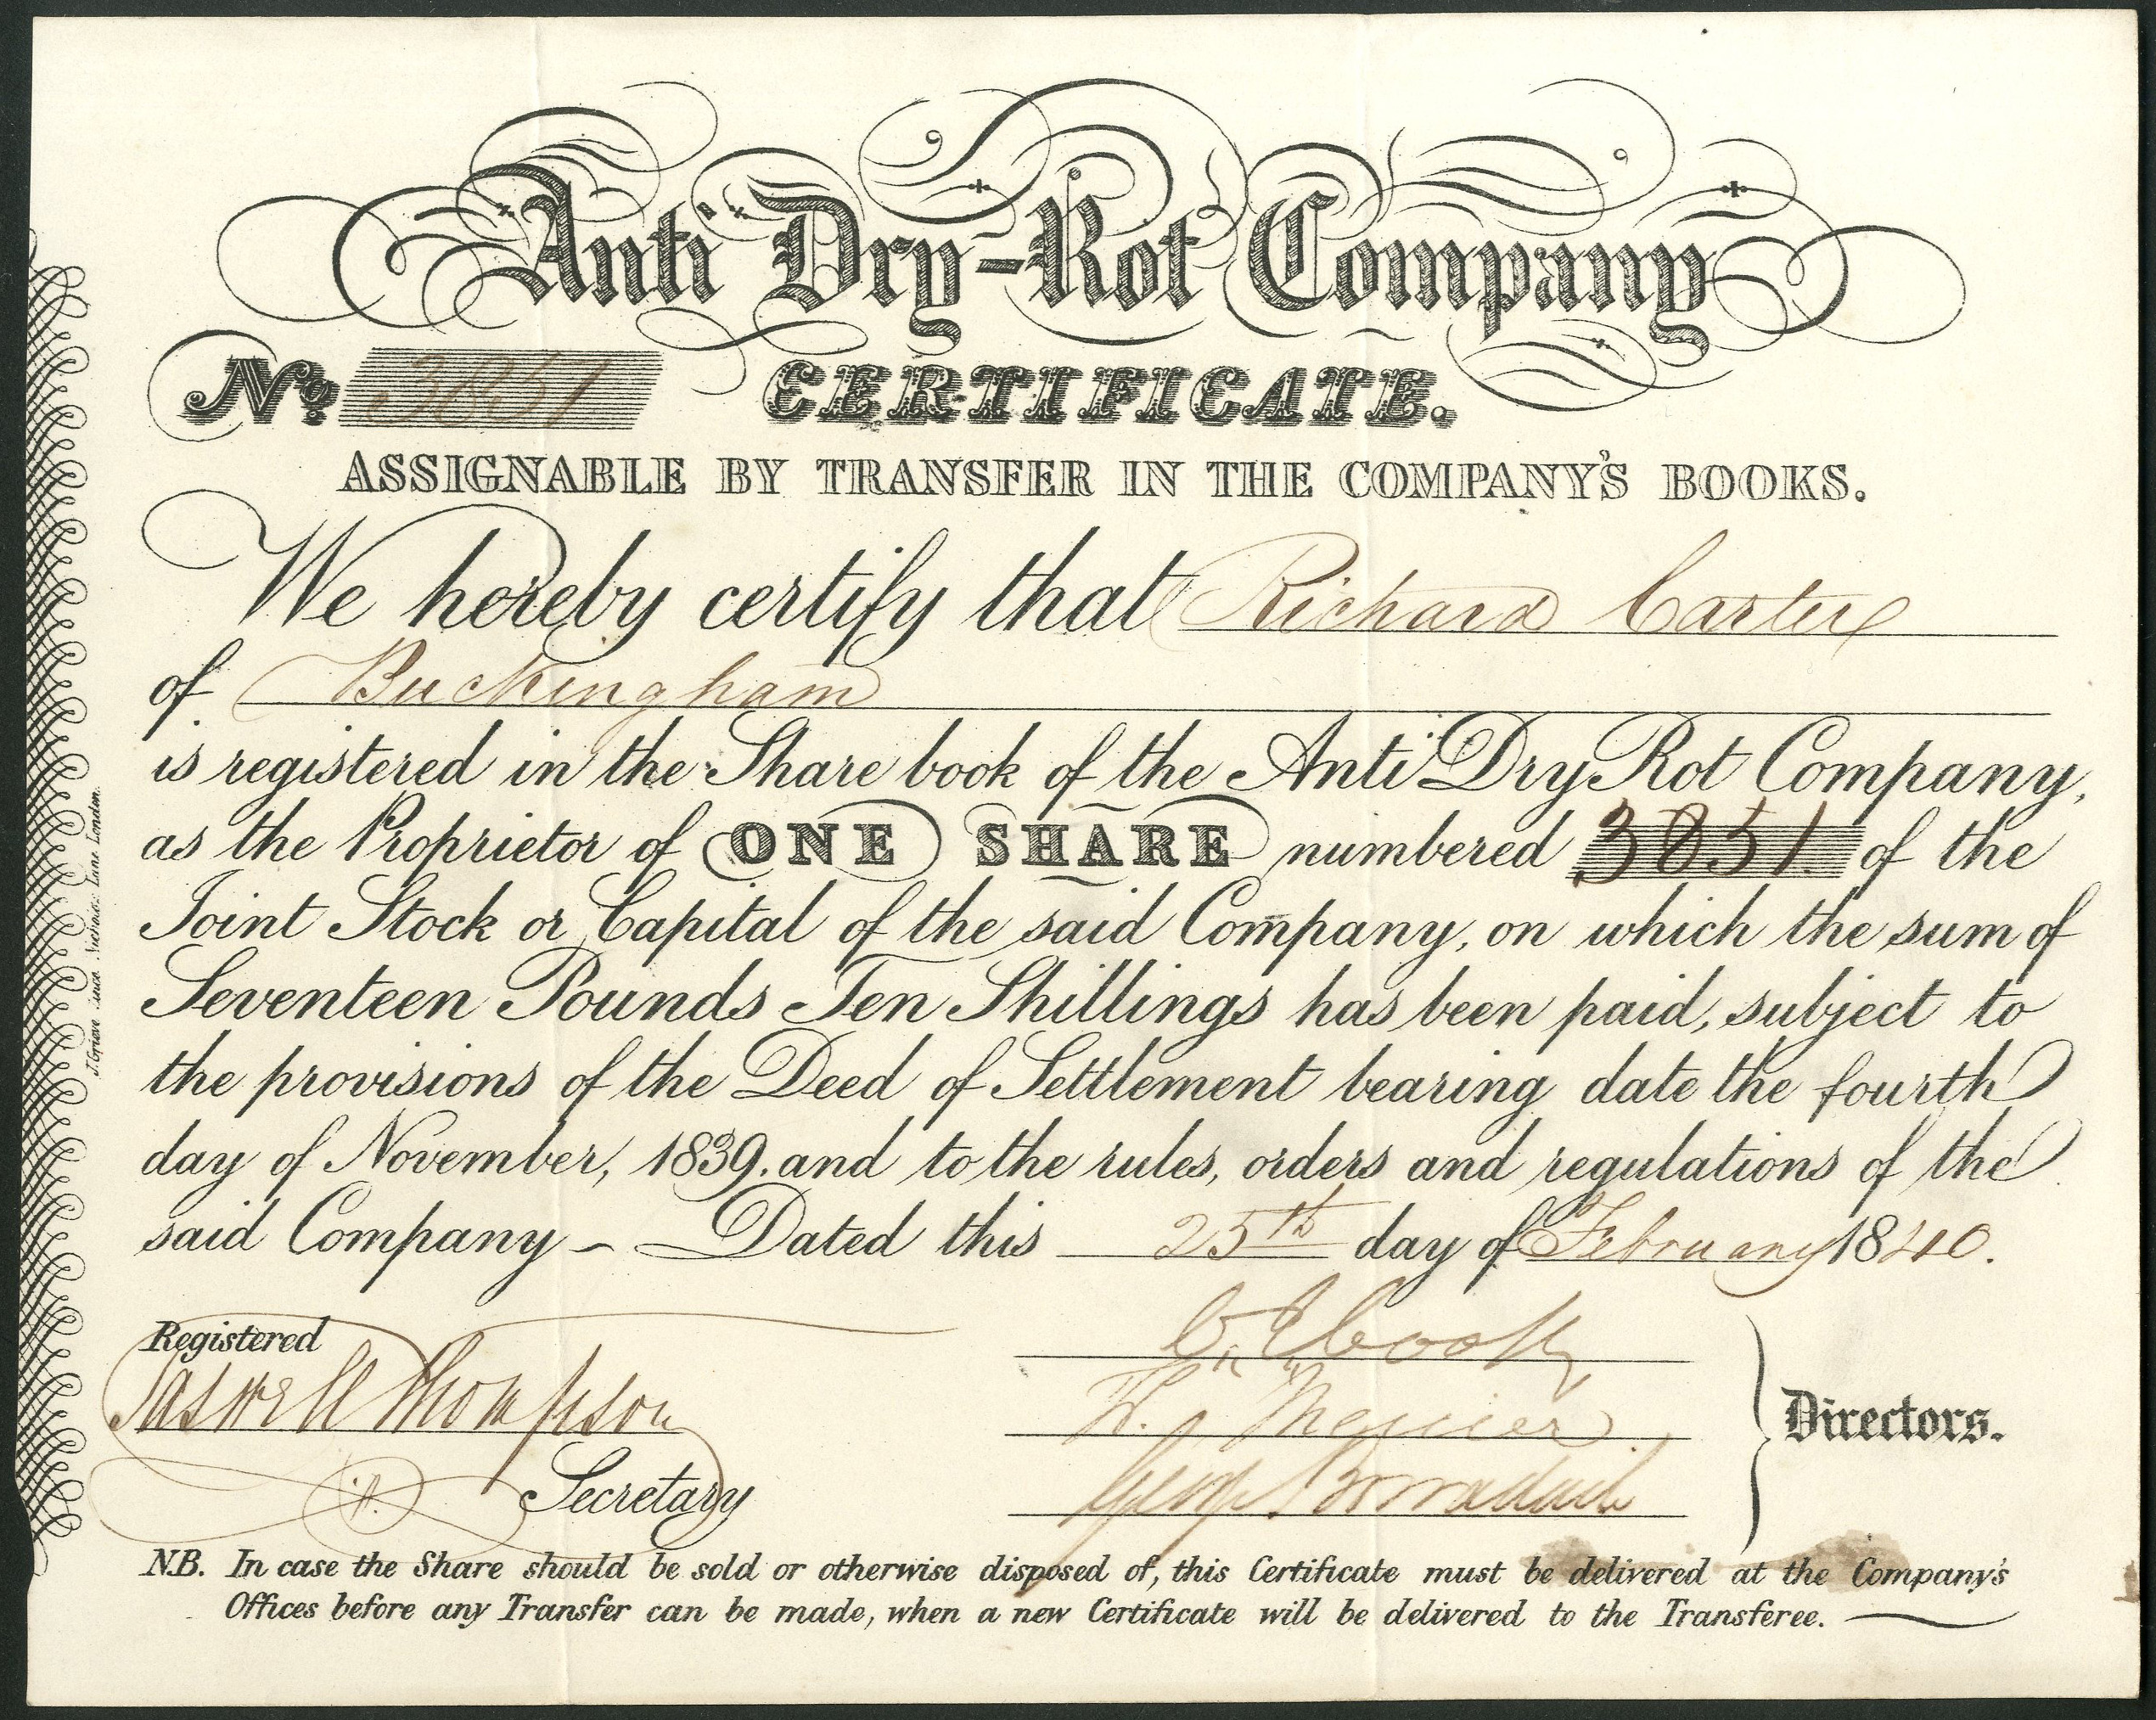 Anti Dry-Rot Company
No. 3851 CERTIFICATE.
ASSIGNABLE BY TRANSFER IN THE COMPANY'S BOOKS.
We hereby certify that Richard Carter
of Buckingham
is registered in the Share book of the Anti Dry Rot Company,
as the Proprietor of ONE SHARE numbered 3851 of the
Joint Stock or Capital of the said Company, on which the sum of
Seventeen Pounds Ten Shillings has been paid, subject to
the provisions of the Deed of Settlement bearing date the fourth
day of November, 1839. and to the rules, orders and regulations of the
said Company — Dated this 25th day of February 1840.
Registered
Thompson
Secretary
Directors.
N.B. In case the Share should be sold or otherwise disposed of, this Certificate must be delivered at the Company's
Offices before any Transfer can be made, when a new Certificate will be delivered to the Transferee.
J. Grieve Lane London.